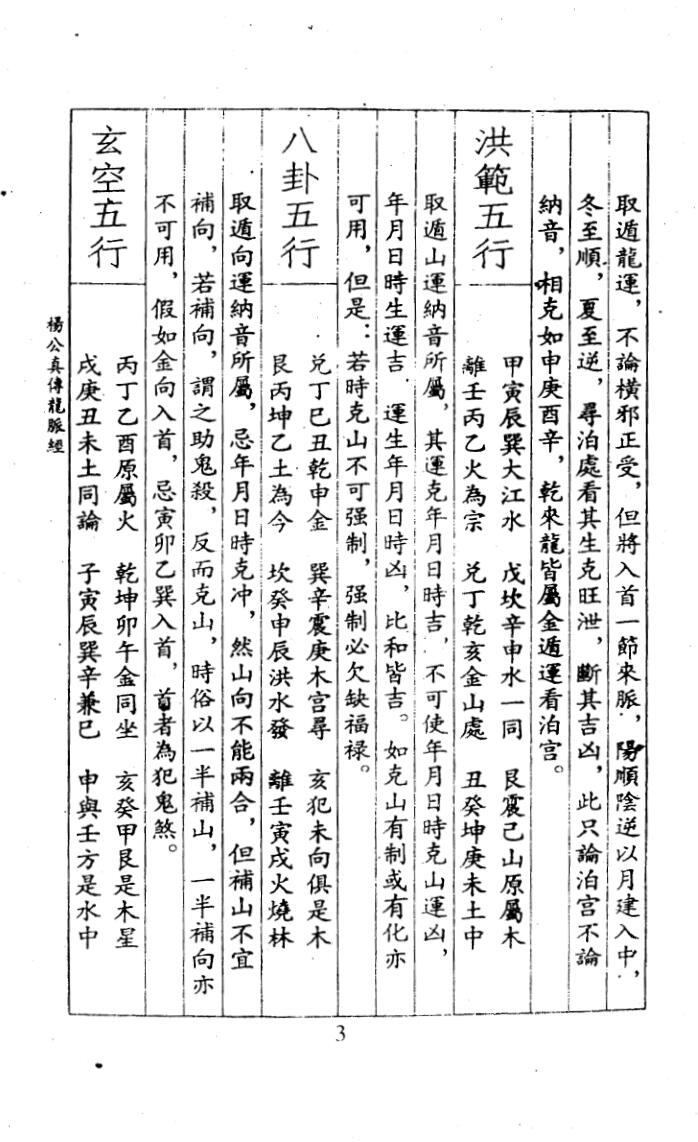 取遁龍運，不論橫邪正受，但將入首一節來脈，陽順陰逆以月建入中，
冬至順，夏至逆，尋泊處看其生克旺泄，斷其吉凶，此只論泊宫不論
納音，相克如申庚酉辛，乾來龍皆屬金遁運看泊宫。
洪範五行
甲寅辰巽大江水　戊坎辛申水一同　艮震己山原屬木
離壬丙乙火為宗　兑丁乾亥金山處　丑癸坤庚未土中
取遁山運納音所屬，其運克年月日時吉，不可使年月日時克山運凶，
年月日時生運吉．運生年月日時凶，比和皆吉。如克山有制或有化亦
可用，但是：若時克山不可强制，强制必欠缺福禄。
八卦五行
兑丁巳丑乾申金　巽辛震庚木宫尋　亥犯未向俱是木
艮丙坤乙土為今　坎癸申辰洪水發　離壬寅戌火燒林
取遁向運納音所屬，忌年月日時克冲，然山向不能兩合，但補山不宜
補向，若補向，謂之助鬼殺，反而克山，時俗以一半補山，一半補向亦
不可用，假如金向入首，忌寅卯乙巽入首，首者為犯鬼煞。
玄空五行
丙丁乙酉原屬火　乾坤卯午金同坐　亥癸甲艮是木星
戌庚丑未土同論　子寅辰巽辛兼巳　申與壬方是水中
楊公真傳龍脈經
3